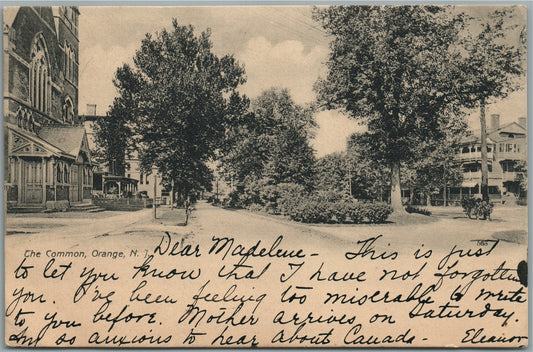 The Common, Orange, N. J.
Dear Madelene- This is just
to let you know that I have not forgotten
you. I've been feeling too miserable to write
to you before. Mother arrives on Saturday.
Am so anxious to hear about Canada- Eleanor